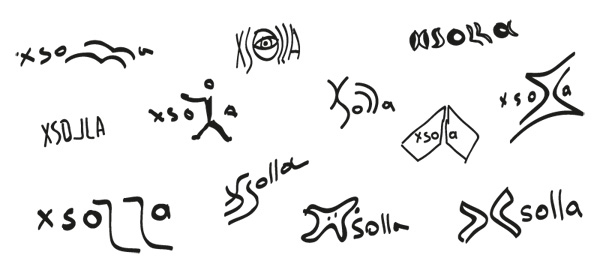 xso a
XSOLLA
xsolla
xso a
XSOLLA
xso a
Xsolla
xso a
xsolla
xsolla
xsolla
xsolla